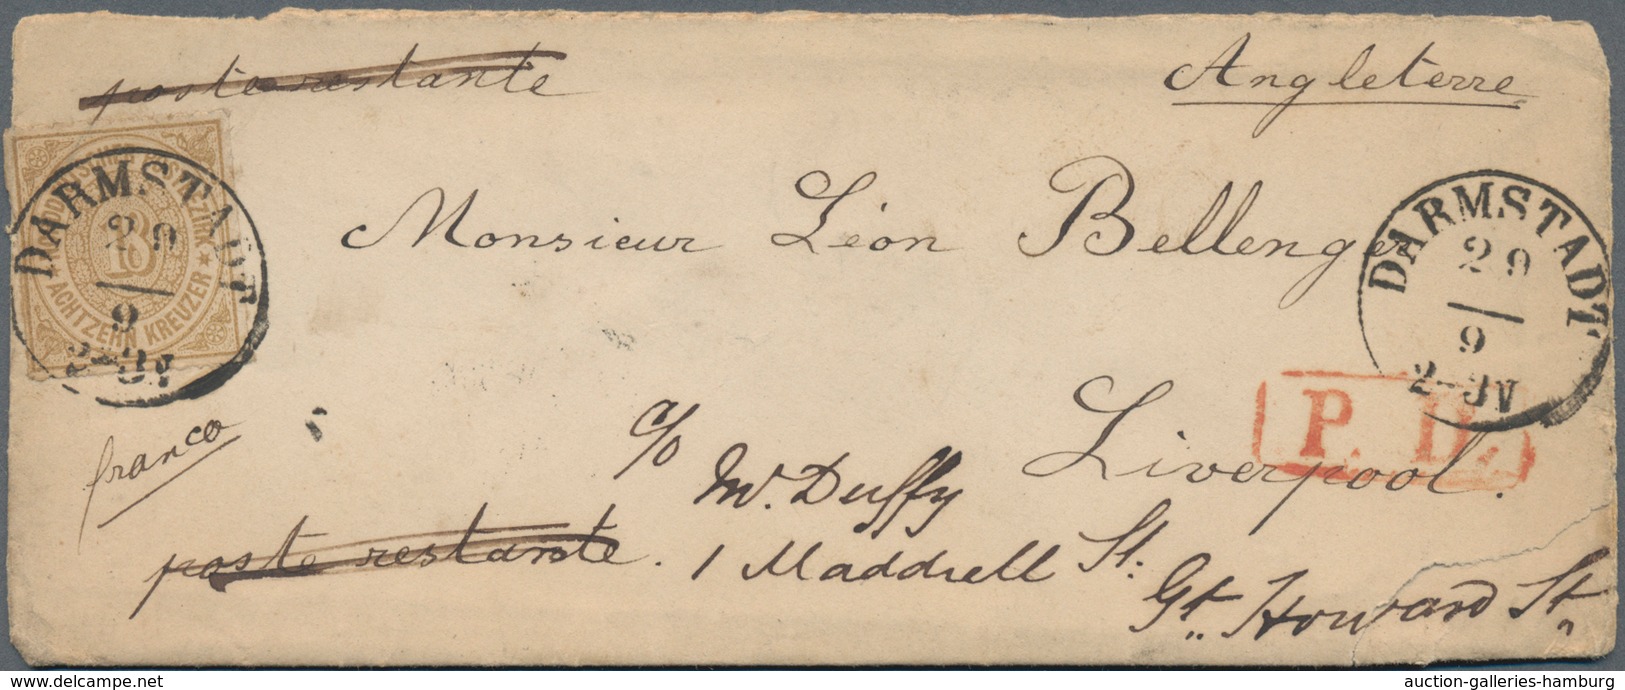 poste restante
Angleterre
NORDDEUTSCHER POSTBEZIRK
18
* ACHTZEHN KREUZER *
DARMSTADT
29
9
2-3N
DARMSTADT
29
9
2-3N
Monsieur Léon Bellenger
P. D.
franco
Liverpool.
c/o
Mr. Duffy
poste restante.
1 Maddrell St:
Gt. Howard St.
delcampe.net
auction-galleries-hamburg